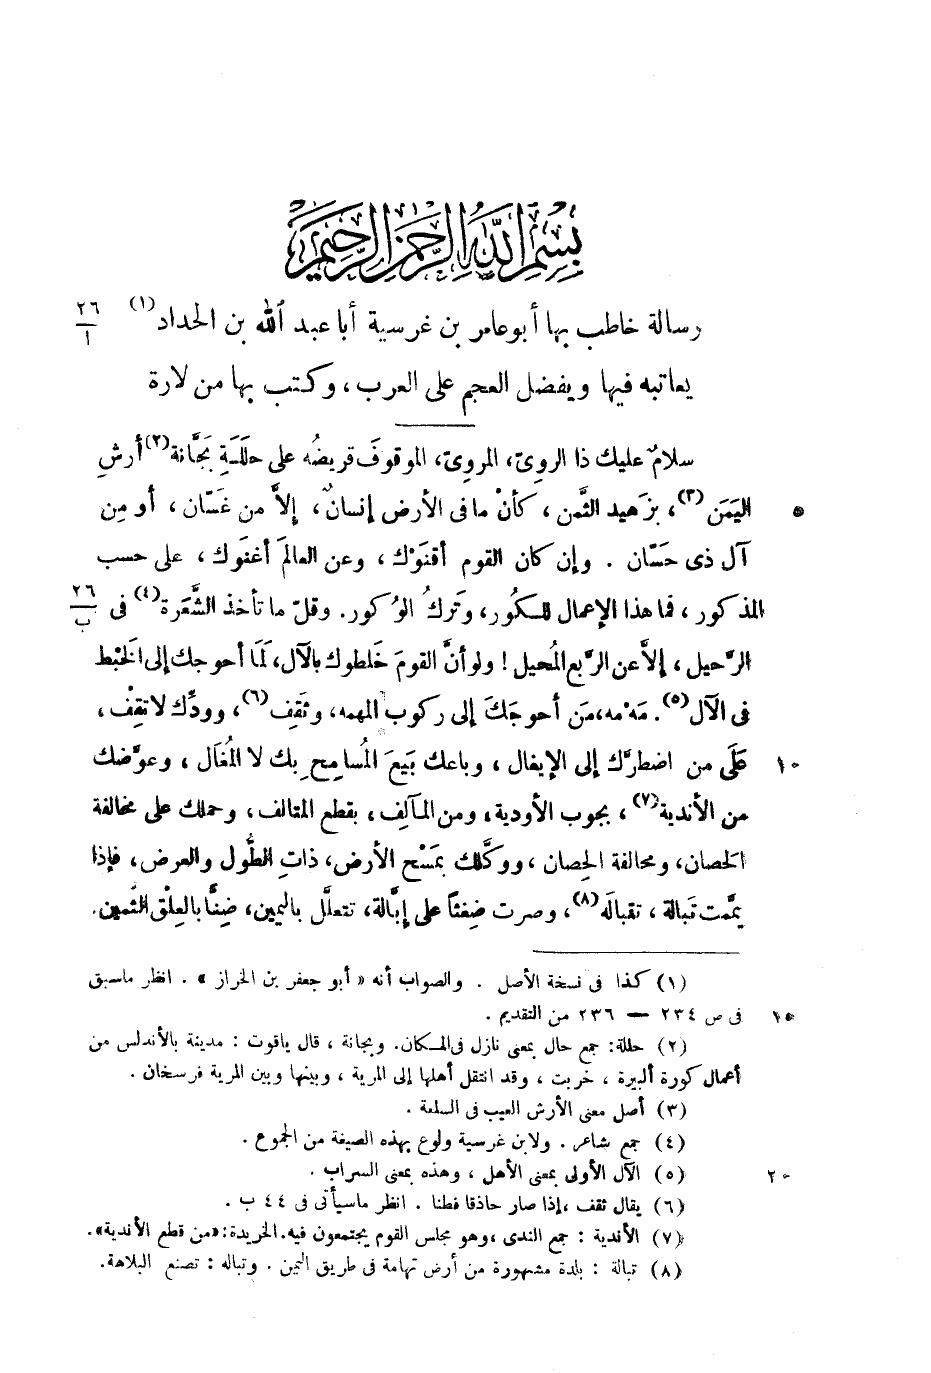 بسم الله الرحمن الرحيم
رسالة خاطب بها أبو عامر بن غرسية أبا عبد الله بن الحداد(١) ٢٦ ا
يعاتبه فيها ويفضل العجم على العرب ، وكتب بها من لارة
سلامٌ عليك ذا الروىّ، المروىّ، الموقوفَ قريضُه على حلَلَةِ بَجَّانة(٢) أرشِ
اليَمَن(٣)، بزَهيد الثَّمن ، كأنْ ما فى الأرض إنسانٌ، إلاَّ من غَسّان ، أو مِن ٥
آل ذى حَسّان . وإن كان القوم أقنَوْك ، وعن العالَم أغنَوك ، على حسب
المذكور ، فما هذا الإعمال للكُور، وتَركُ الوُكور. وقلّ ما تأخذ الشَّعَرة(٤) فى ٢٦ ب
الرَّحيل ، إلاَّ عن الرَّبع المُحيل ! ولو أنَّ القومَ خَلطوك بالآل، لَمَا أحوجك إلى الخَبْط
فى الآل(٥). مَهْ مه، مَن أحوجَكَ إلى ركوب المهمه، وثَقِف(٦)، وودِّك لا تقِفْ ،
عَلَى من اضطرّك إلى الإيغال ، وباعك بَيعَ المُسامِح بك لا المُغَال ، وعوَّضك ١٠
من الأندية(٧) ، بجوب الأودية، ومن المآلِف ، بقطع المتالف ، وحملك على مخالفة
الحَصان، ومحالفة الحِصان ، ووكَّلك بمَسْح الأرض، ذاتِ الطُّول والعرض، فإذا
يمَّمت تَبالة ، تقبالَه(٨)، وصرت ضِغثًا على إبَّالة، تتعلَّل باليمين، ضِنًّا بالعِلْق الثَّمين.
(١) كذا فى نسخة الأصل . والصواب أنه « أبو جعفر بن الخراز » . انظر ما سبق
فى ص ٢٣٤ — ٢٣٦ من التقديم . ١٥
(٢) حللة: جمع حال بمعنى نازل فى المكان. وبجانة ، قال ياقوت : مدينة بالأندلس من
أعمال كورة ألبيرة ، خربت ، وقد انتقل أهلها إلى المرية ، وبينها وبين المرية فرسخان .
(٣) أصل معنى الأرش العيب فى السلعة .
(٤) جمع شاعر . ولابن غرسية ولوع بهذه الصيغة من الجموع .
(٥) الآل الأولى بمعنى الأهل ، وهذه بمعنى السراب . ٢٠
(٦) يقال ثقف ، إذا صار حاذقا فطنا . انظر ما سيأتى فى ٤٤ ب .
(٧) الأندية : جمع الندى ، وهو مجلس القوم يجتمعون فيه. الخريدة: «من قطع الأندية».
(٨) تبالة : بلدة مشهورة من أرض تهامة فى طريق اليمن . وتباله : تصنع البلاهة.